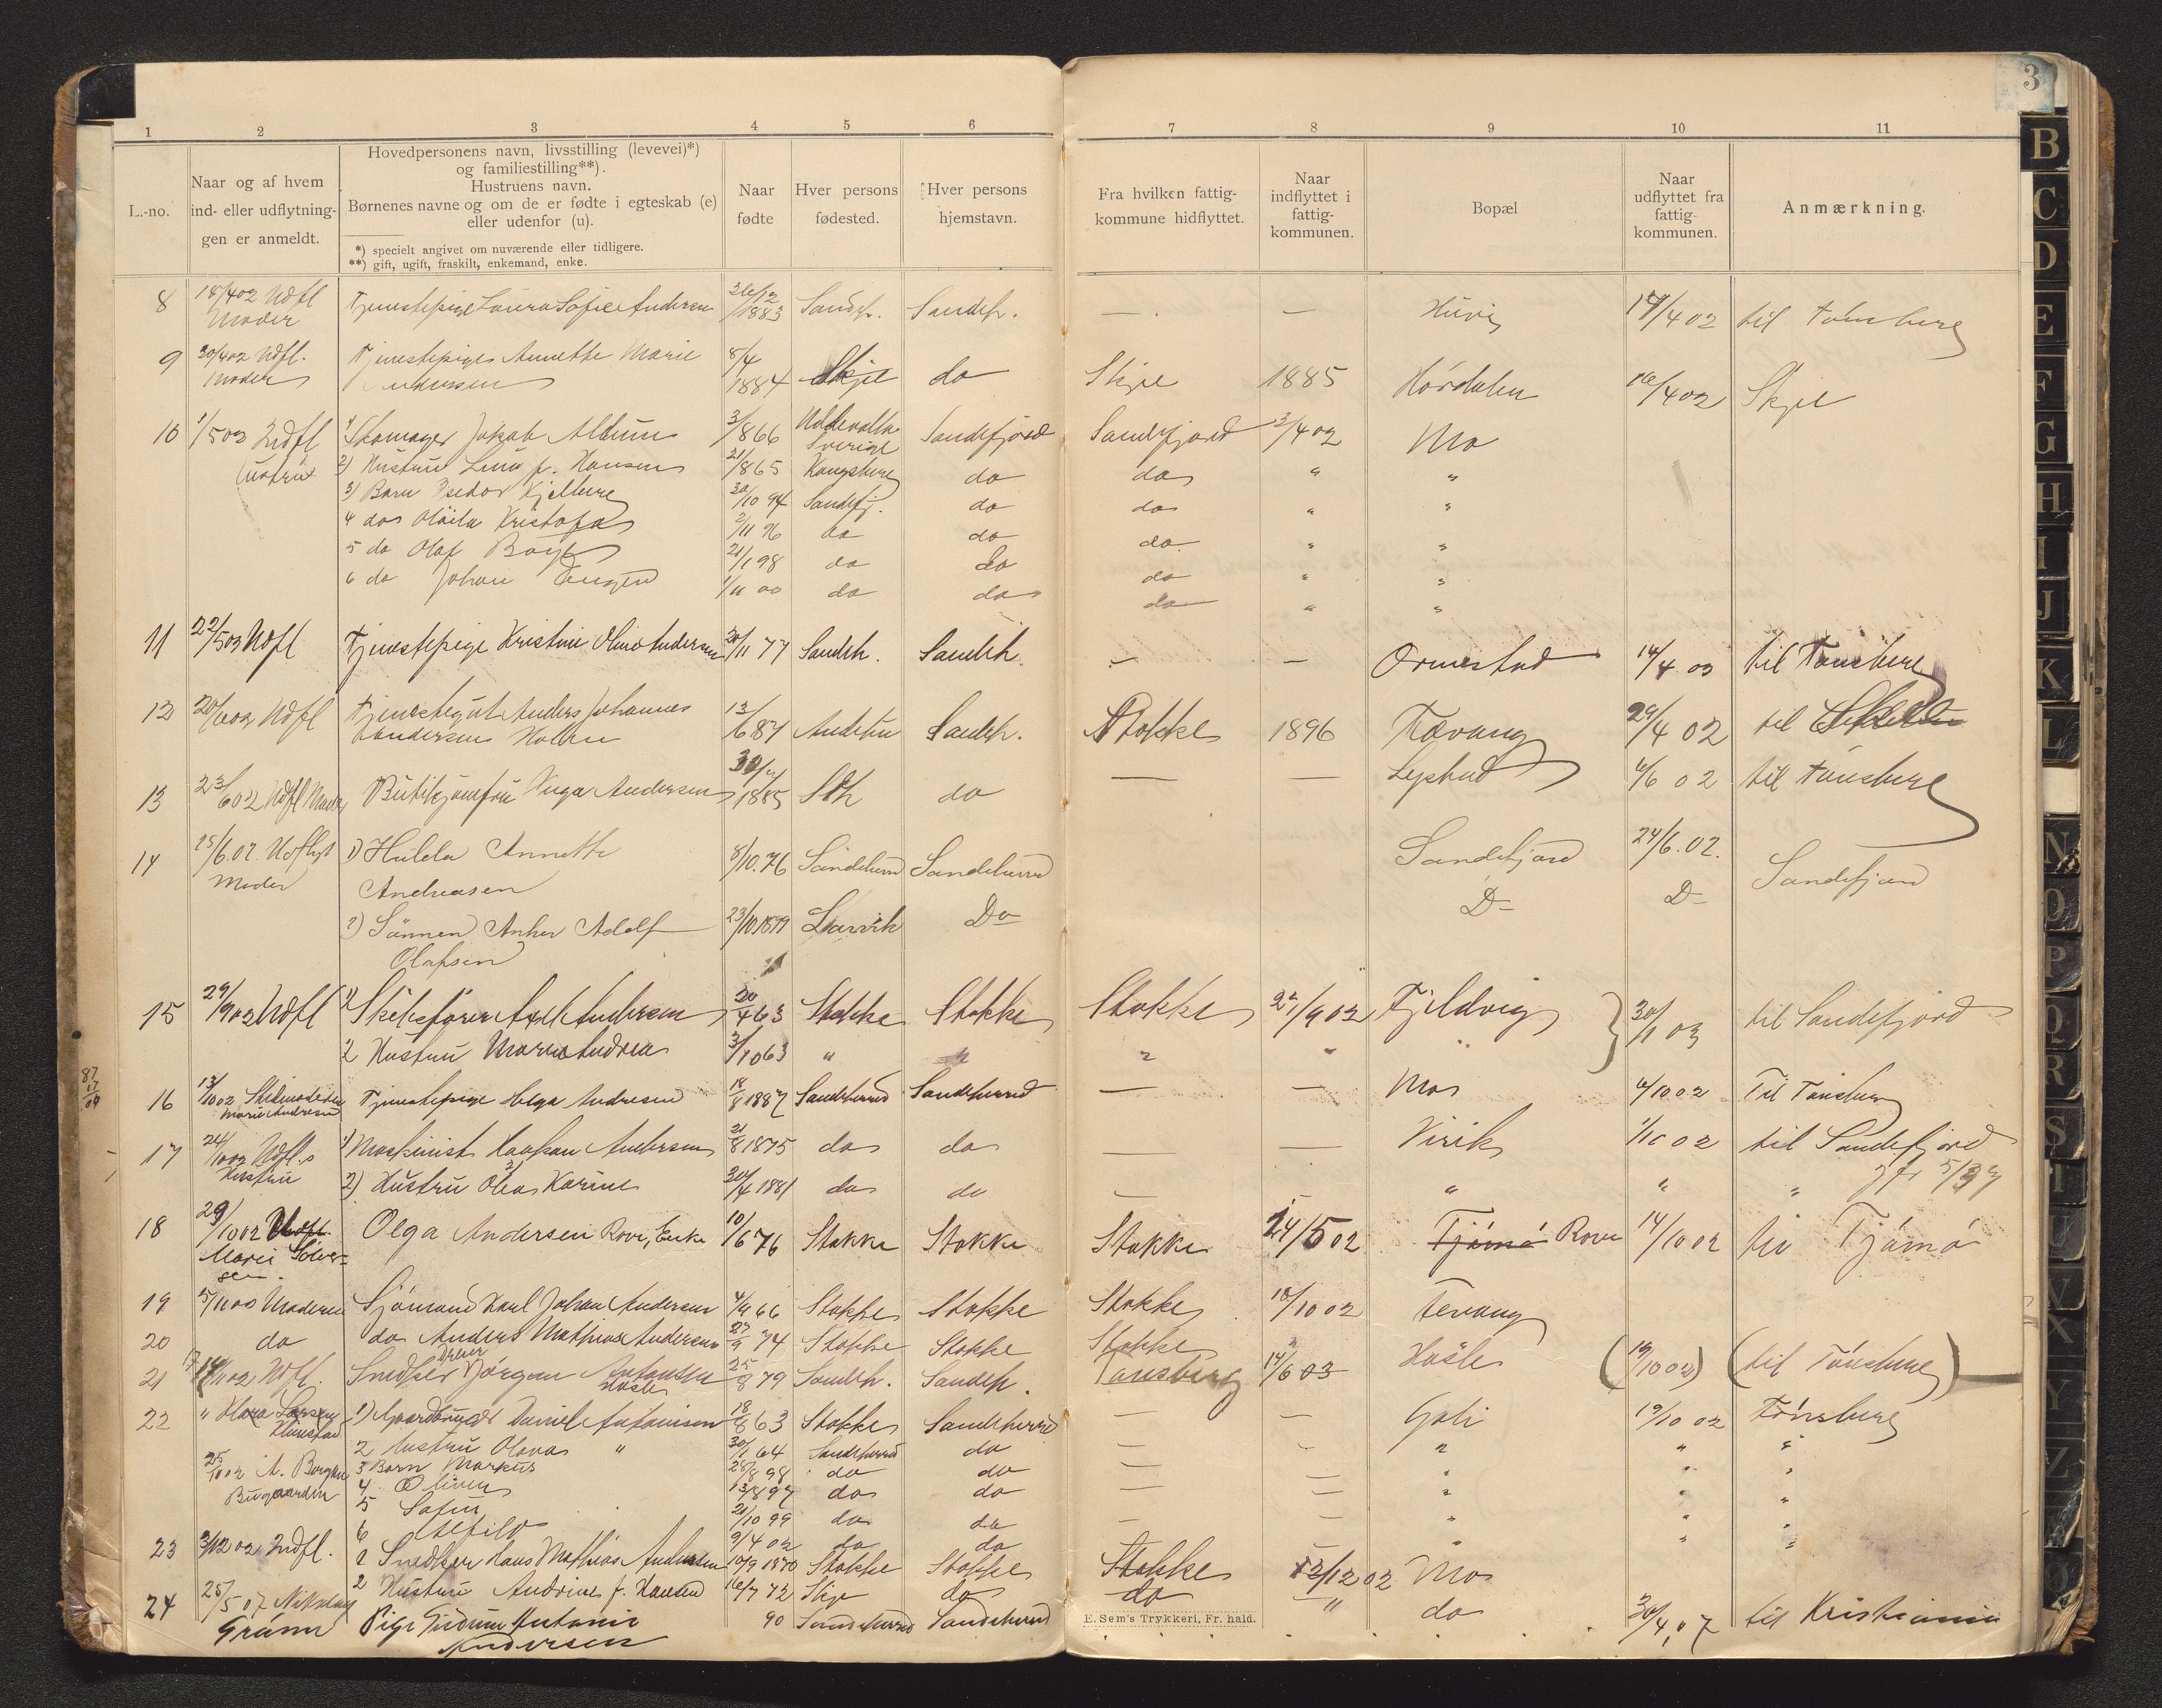 3
1 2 3 4 5 6 7 8 9 10 11
L.-no.
Naar og af hvem
ind- eller udflytnin-
gen er anmeldt.
Hovedpersonens navn, livsstilling (levevei)*)
og familiestilling**).
Hustruens navn.
Børnenes navne og om de er fødte i egteskab (e)
eller udenfor (u).
*) specielt angivet om nuværende eller tidligere.
**) gift, ugift, fraskilt, enkemand, enke.
Naar
fødte
Hver persons
fødested.
Hver persons
hjemstavn.
Fra hvilken fattig-
kommune hidflyttet.
Naar
indflyttet i
fattig-
kommunen.
Bopæl
Naar
udflyttet fra
fattig-
kommunen.
Anmærkning.
8 18/4 02 Udfl Tjenestepige Laura Sofie Andersen 26/12 Sandeh. Sandeh. — — Huvig 18/4 02 til Tønsberg
Moder 1883
9 30/4 02 Udfl. Tjenestepige Annette Marie 8/4
Moder Andersen 1884 Skje do Skje 1885 Hørdalen 16/4 02 Skje
10 1/5 02 Indfl 1) Skomager Jakob Aldum 3/8 66 Uddevalla Sverige Sandefjord Sandefjord 3/4 02 Mo
2) Hustru Lina f. Hansen 21/8 65 Kongsberg do do " "
3) Barn Isedor Kjelberg 30/10 94 Sandefj. do do " "
4 do Kristofa 2/11 96 do do do " "
5 do Olaf Borge 21/1 98 do do do " "
6 do Johan Eugen 1/11 00 do do do " "
11 22/5 03 Udfl Tjenestepige Kristine Olava Andersen 20/11 77 Sandeh. Sandeh. — — Ormestad 14/4 03 til Tønsberg
12 20/6 02 Udfl Tjenestegut Anders Johannes 13/6 87 Andebu Sandeh. Stokke 1896 Tevang 29/4 02 til
Andersen Holm
13 23/6 02 Udfl Moder Butikjomfru Inga Andersen 30/ 1885 Sdh do — — Lystad 4/6 02 til Tønsberg
14 25/6.02. Udflyt 1) Hulda Annette 8/10.76 Sandeherred Sandeherred Sandefjord 24/6.02. Sandefjord
Moder Andreasen D- D-
2) Sønnen Anker Adolf 23/10 1899 Larvik Do
Olafsen
15 29/9 02 Udfl 1) Skibsfører Axel Andersen 20/4 63 Stokke Stokke Stokke 22/9 02 Fjeldvig 30/1 03 til Sandefjord
2 Hustru Maria Andrea 3/10 63 " " " " "
87
17
04
16 13/10 02 Stedmoderen Tjenestepige Helga Andresen 18/8 1887 Sandeherred Sandeherred — — Mo 4/10 02 Til Tønsberg
Marie Andresen
17 24/10 02 Udfl. s 1) Maskinist Haakon Andersen 21/8 1875 do do — — Virik 1/10 02 til Sandefjord
Hustru 2) Hustru Olea Karine 30/4 1881 do do — " " "
18 29/10 02 Udfl. Olga Andersen Rove, Enke 10/6 76 Stokke Stokke Stokke 24/5 02 Tjømø Rove 14/10 02 til Tjømø
Marie Sever-
sen.
19 5/11 00 Moderen Sjømand Karl Johan Andersen 4/9 66 Stokke Stokke Stokke 10/10 02 Tevang
20 do do Anders Mathias Andersen 27/9 74 Stokke Stokke Stokke
21 17/11 02 Udfl. Snedker Jørgen Antonsen 25/8 79 Sandeh. Sandeh. Tønsberg 14/6 03 Hasle (19/10 02) (til Tønsberg)
Hasle
22 " Klara Larsen 1) Gaardbruger Daniel Antonisen 18/8 63 Stokke Sandeherred — — Gøli 19/10 02 Tønsberg
Klinestad 2 Hustru Olava " 30/1 64 Sandeherred do — — " " "
25/10 02 A. Bergan 3 Barn Markus 28/8 98 do do — — " " "
Bugaarden 4 Oliver 13/8 97 do do — — " " "
5 Sofie 21/10 99 do do — — " " "
6 9/4 02 do do " "
23 3/12 02 Indfl. 1 Snedker Hans Mathias Andersen 10/9 1870 Stokke Stokke Stokke 12/12 02 Mo
2 Hustru Andrine f. Hansen 16/7 72 Skje do do " do
24 25/5 07 Nikolay Pige Gudrun Antonie 90 Sandeherred Sandeherred 30/4 07 til Kristiania
Grønn Andersen
E. Sem's Trykkeri, Fr. hald.
B
C
D
E
F
G
H
I
J
K
L
N
O
P
Q
R
S
T
U
V
X
Y
Z